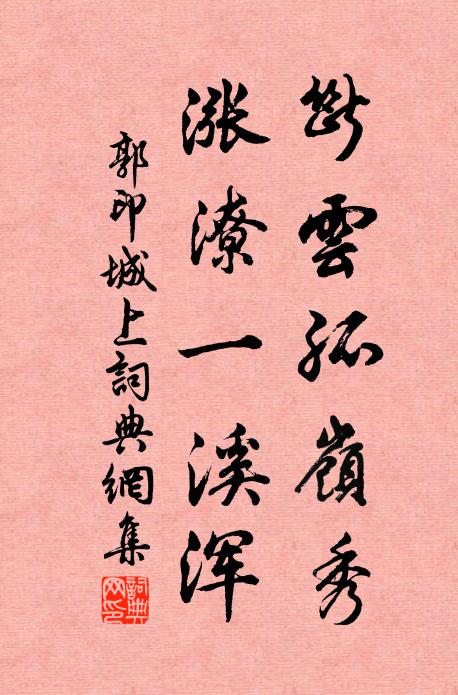 斷雲孤嶺秀
漲潦一溪浑
郭印城上詞典網集
詞典网印